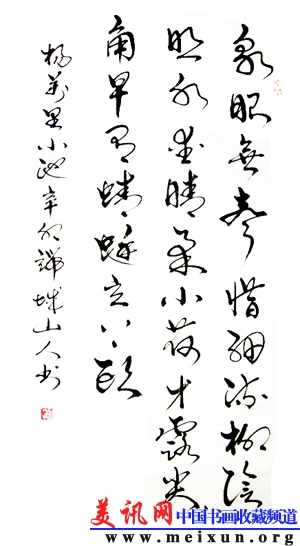 泉眼無聲惜細流樹陰
照水愛晴柔小荷才露尖尖
角早有蜻蜓立上頭
楊萬里小池辛卯城山人书
美讯网 中国书画收藏频道
www.meixun.org